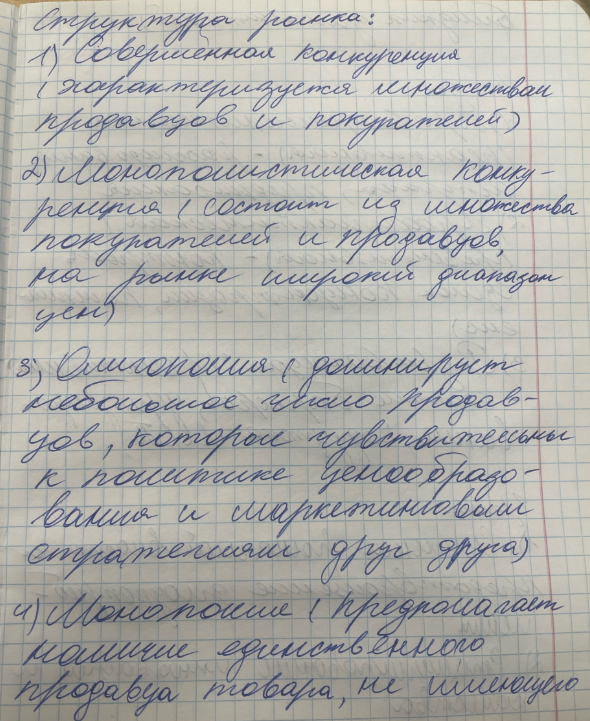 Структура рынка:
1) Совершенная конкуренция
(характеризуется множеством
продавцов и покупателей)
2) Монополистическая конку-
ренция (состоит из множества
покупателей и продавцов,
на рынке широкий диапазон
цен)
3) Олигополия (доминирует
небольшое число продав-
цов, которые чувствительны
к политике ценообразо-
вания и маркетинговым
стратегиям друг друга)
4) Монополия (предполагает
наличие единственного
продавца товара, не имеющего